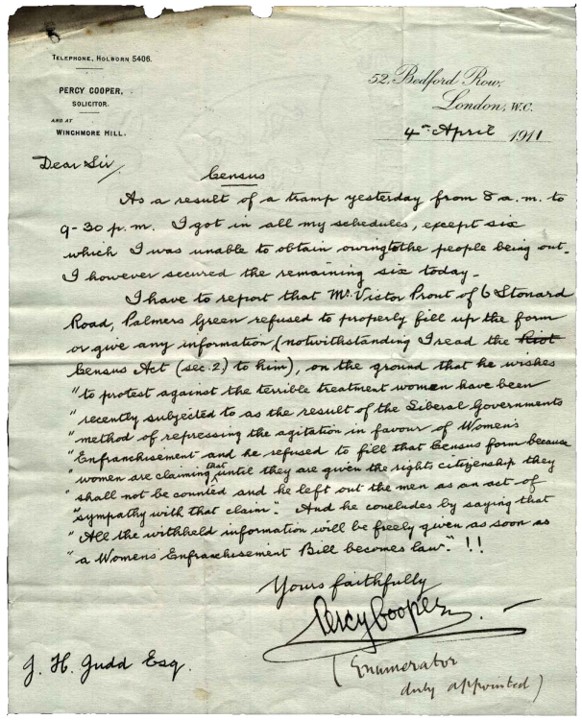 TELEPHONE, HOLBORN 5406.
PERCY COOPER,
SOLICITOR.
AND AT
WINCHMORE HILL.
52, Bedford Row,
London, W.C.
4th April 1911
Dear Sir,
Census
As a result of a tramp yesterday from 8 a.m. to
9-30 p.m. I got in all my schedules, except six
which I was unable to obtain owing to the people being out.
I however secured the remaining six today.
I have to report that Mr. Victor Prout of 6 Stonard
Road, Palmers Green refused to properly fill up the form
or give any information (notwithstanding I read the Riot
Census Act (sec. 2) to him), on the ground that he wishes
"to protest against the terrible treatment women have been
"recently subjected to as the result of the Liberal Governments
"method of repressing the agitation in favour of Women's
"Enfranchisement and he refused to fill that Census form because
"women are claiming that until they are given the rights citizenship they
"shall not be counted and he left out the men as an act of
"sympathy with that claim." And he concludes by saying that
"All the withheld information will be freely given as soon as
"a Womens Enfranchisement Bill becomes law." !!
Yours faithfully
Percy Cooper.
(Enumerator
duly appointed)
J. H. Judd Esq.